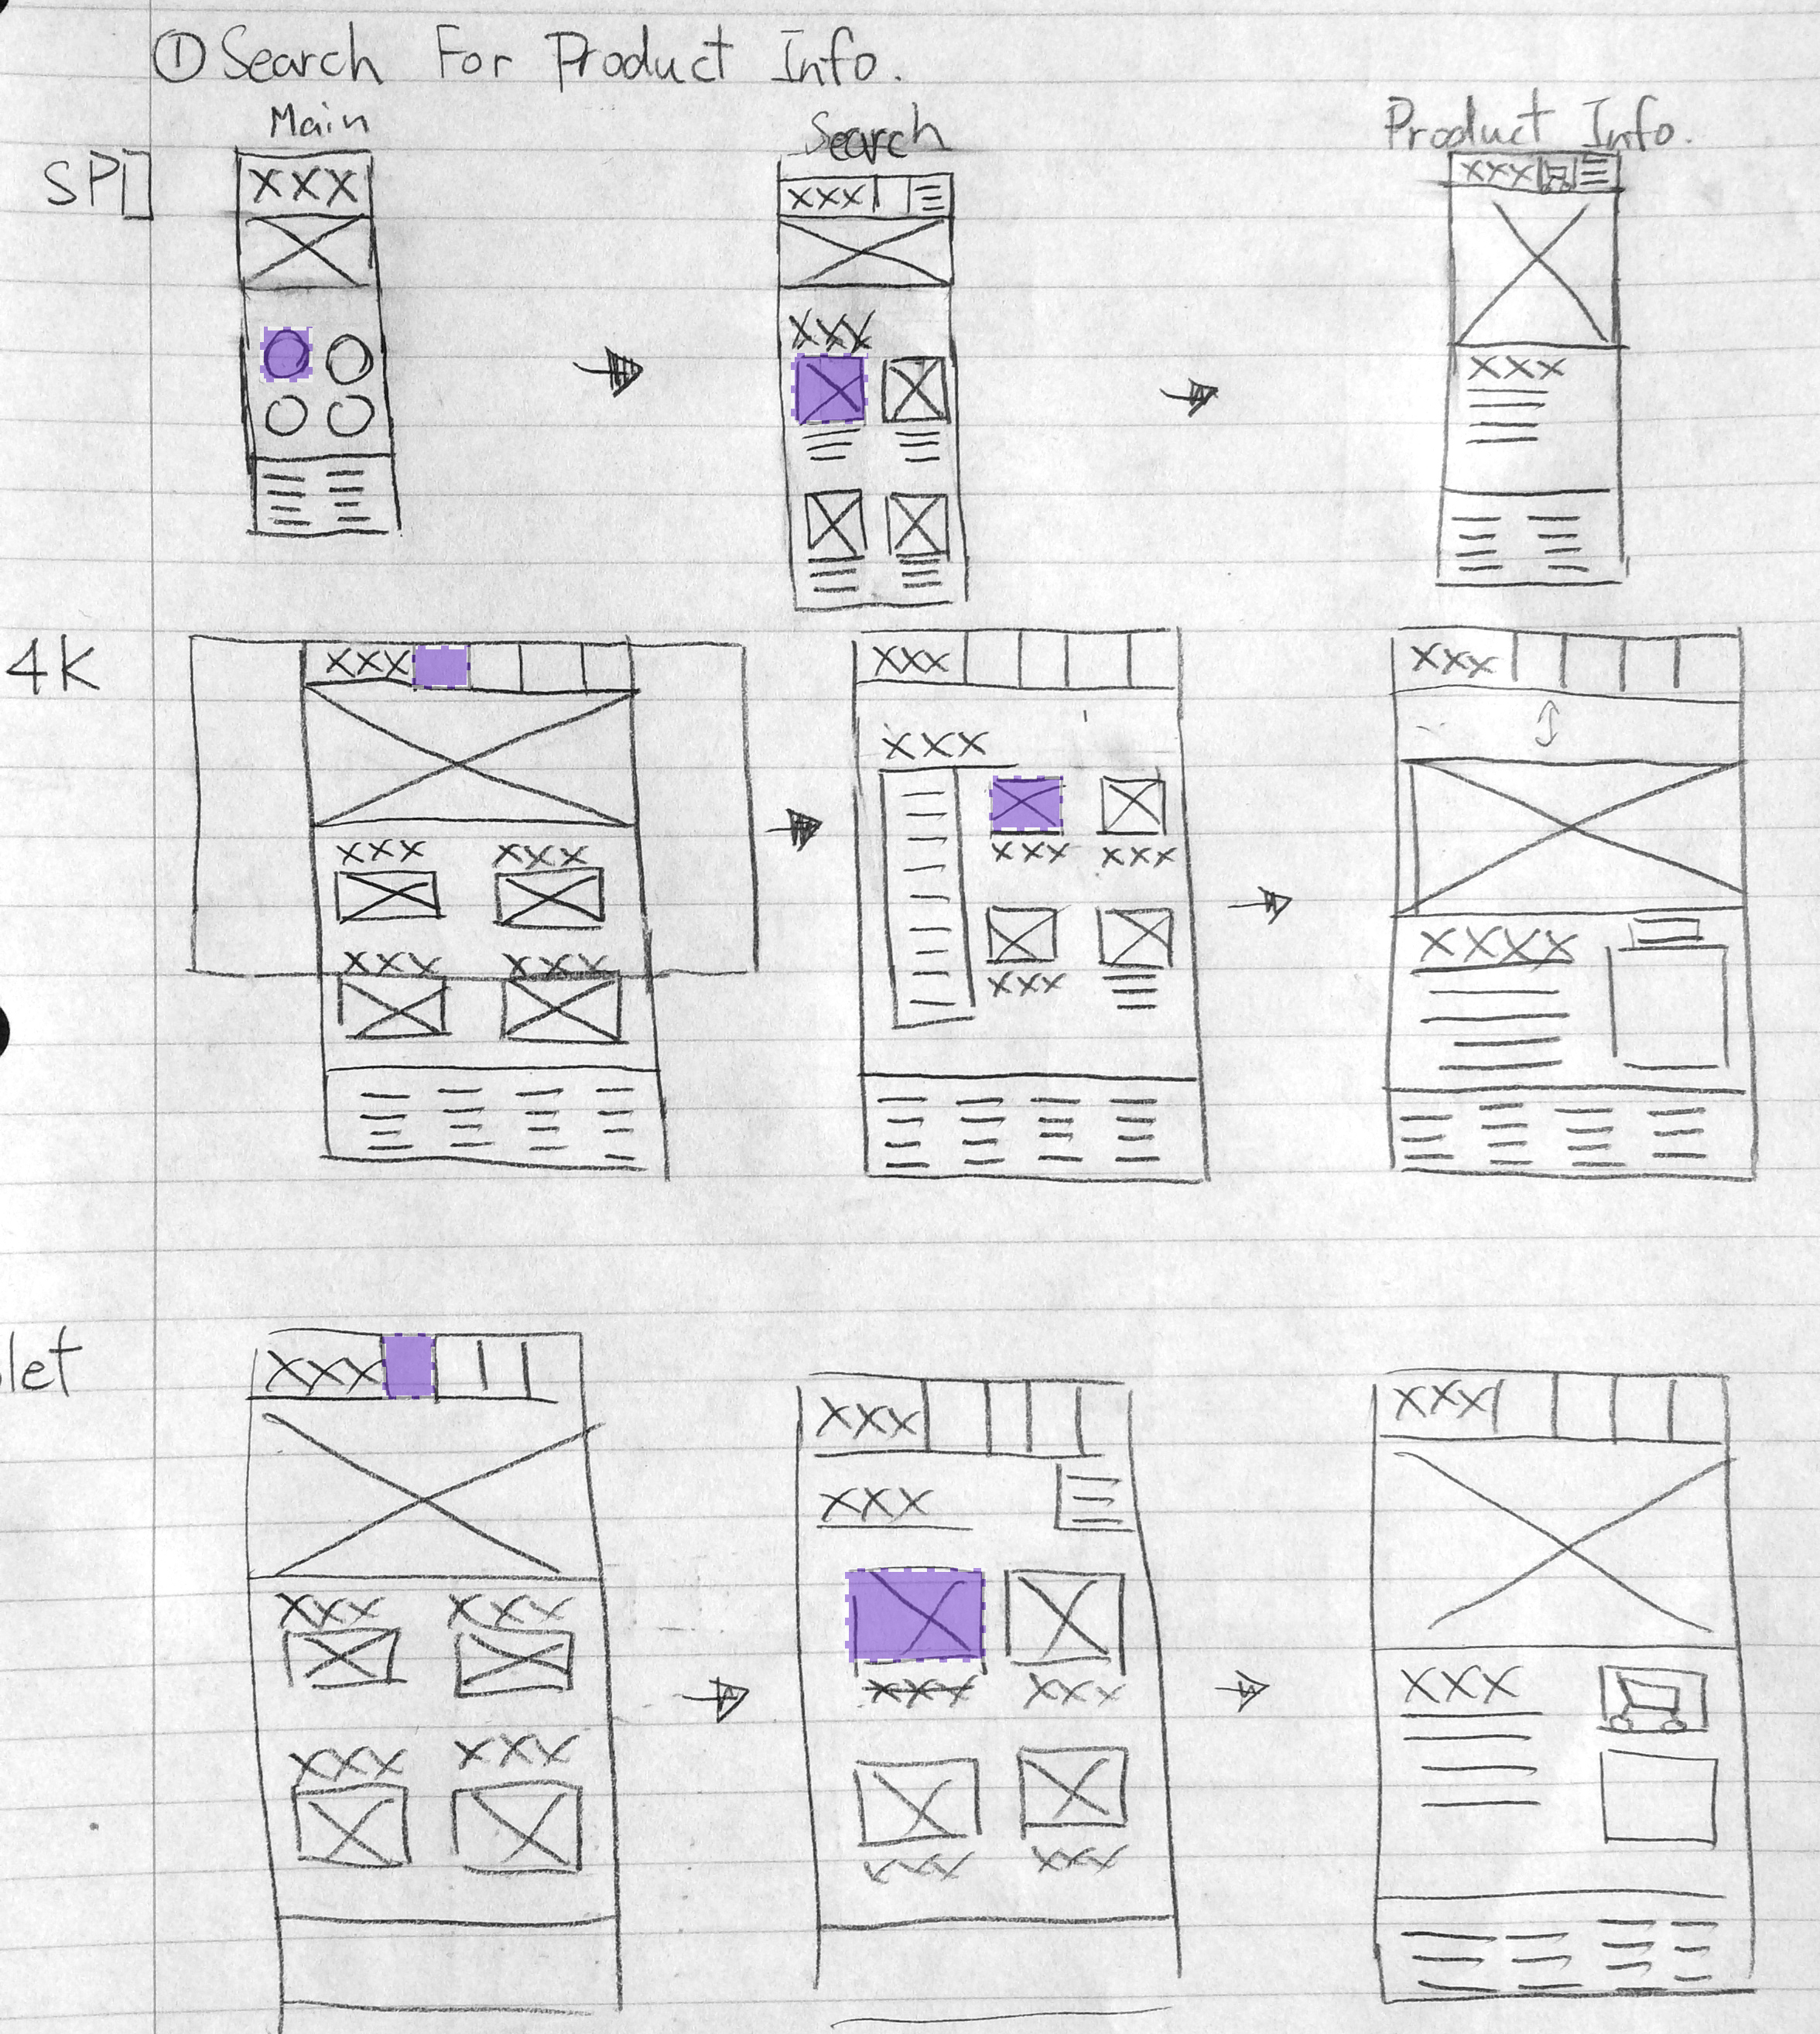 ① Search For Product Info.
Main
Search
Product Info.
SP
XXX
XXX
XXX
XXX
XXX
4K
XXX
XXX
XXX
XXX
XXX
XXX
XXX
XXX
XXX
XXX
XXXX
XXX
XXX
XXX
let
XXX
XXX
XXX
XXX
XXX
XXX
XXX
XXX
XXX
XXX
XXX
XXX
XXX
XXX